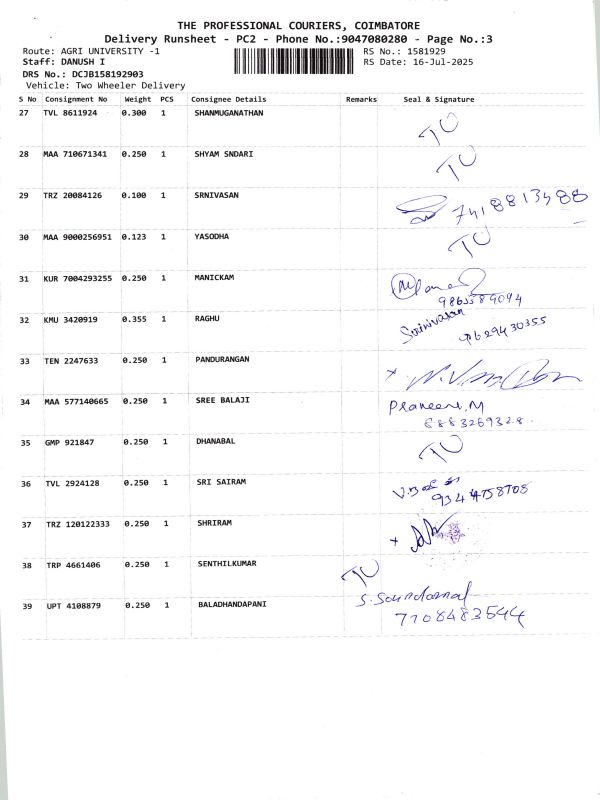 THE PROFESSIONAL COURIERS, COIMBATORE
Delivery Runsheet - PC2 - Phone No.:9047080280 - Page No.:3
Route: AGRI UNIVERSITY -1 RS No.: 1581929
Staff: DANUSH I RS Date: 16-Jul-2025
DRS No.: DCJB158192903
Vehicle: Two Wheeler Delivery
S No Consignment No Weight PCS Consignee Details Remarks Seal & Signature
27 TVL 8611924 0.300 1 SHANMUGANATHAN TU
28 MAA 710671341 0.250 1 SHYAM SNDARI TU
29 TRZ 20084126 0.100 1 SRNIVASAN 7418813488
30 MAA 9000256951 0.123 1 YASODHA TU
31 KUR 7004293255 0.250 1 MANICKAM
32 KMU 3420919 0.355 1 RAGHU Srinivasan
9629430355
33 TEN 2247633 0.250 1 PANDURANGAN
34 MAA 577140665 0.250 1 SREE BALAJI Praneeve, M
8883269328
35 GMP 921847 0.250 1 DHANABAL TU
36 TVL 2924128 0.250 1 SRI SAIRAM
9344758708
37 TRZ 120122333 0.250 1 SHRIRAM
38 TRP 4661406 0.250 1 SENTHILKUMAR TU
39 UPT 4108879 0.250 1 BALADHANDAPANI S. Soundarnal
7708483544